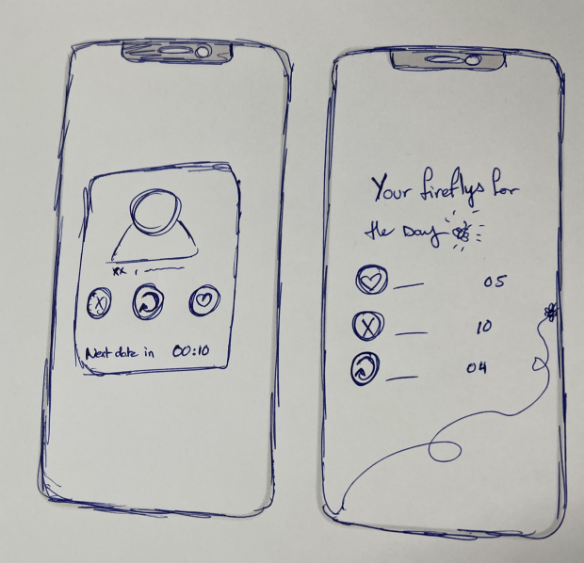 xx,
X
Next date in 00:10
Your fireflys for
the Day
05
X 10
04